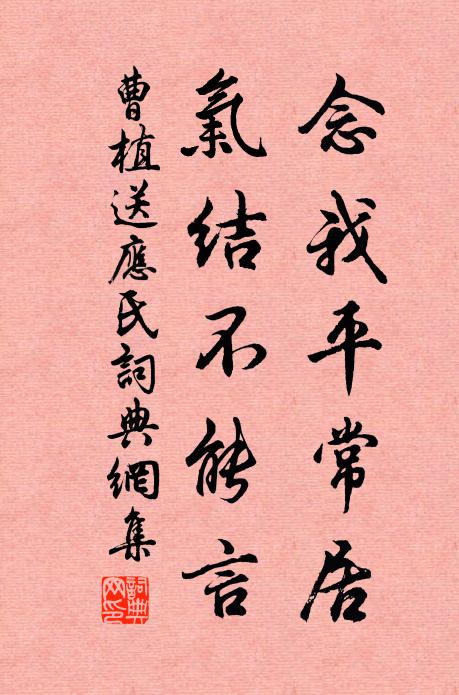 念我平常居
氣結不能言
曹植送應氏詞典網集
詞典
网印